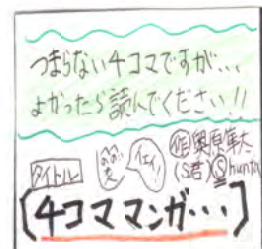 つまらない4コマですが...
よかったら読んでください!!
タイトル
イエイ!
作
(S君)
Shunta
(4コママンガ...)